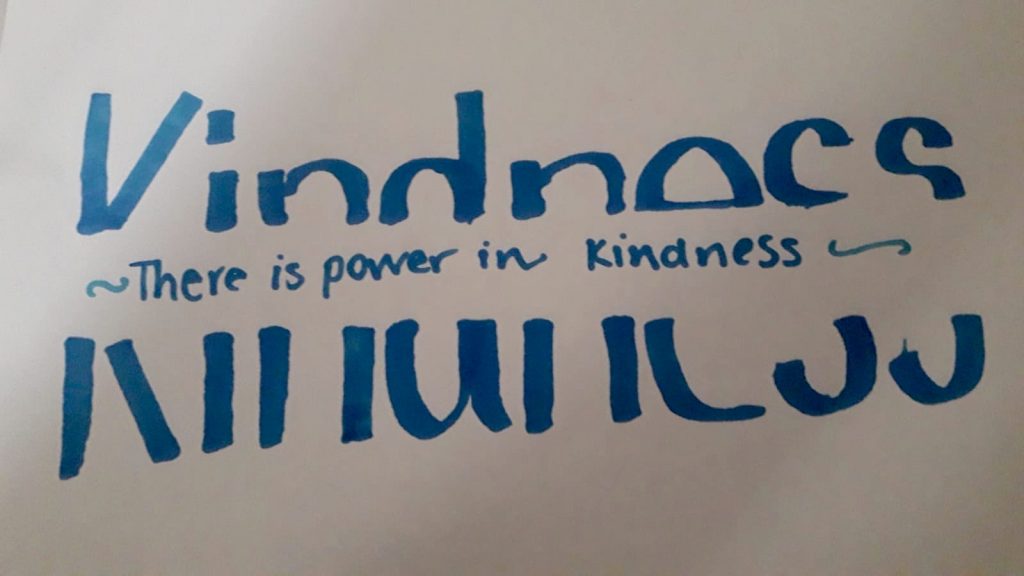 Kindness
~There is power in kindness~